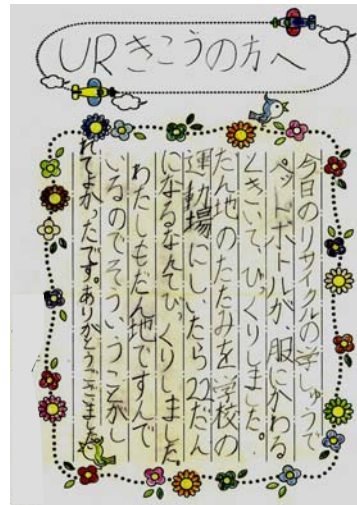 URきこうの方へ
今日のリサイクルの学しゅうで
ペットボトルが、服にかわる
ときいて、びっくりしました。
たん地のたたみを学校の
運動場にしいたら22だん
になるなんてびっくりしました
わたしもだん地ですんで
いるのでそういうことがし
れてよかったです。ありがとうございました